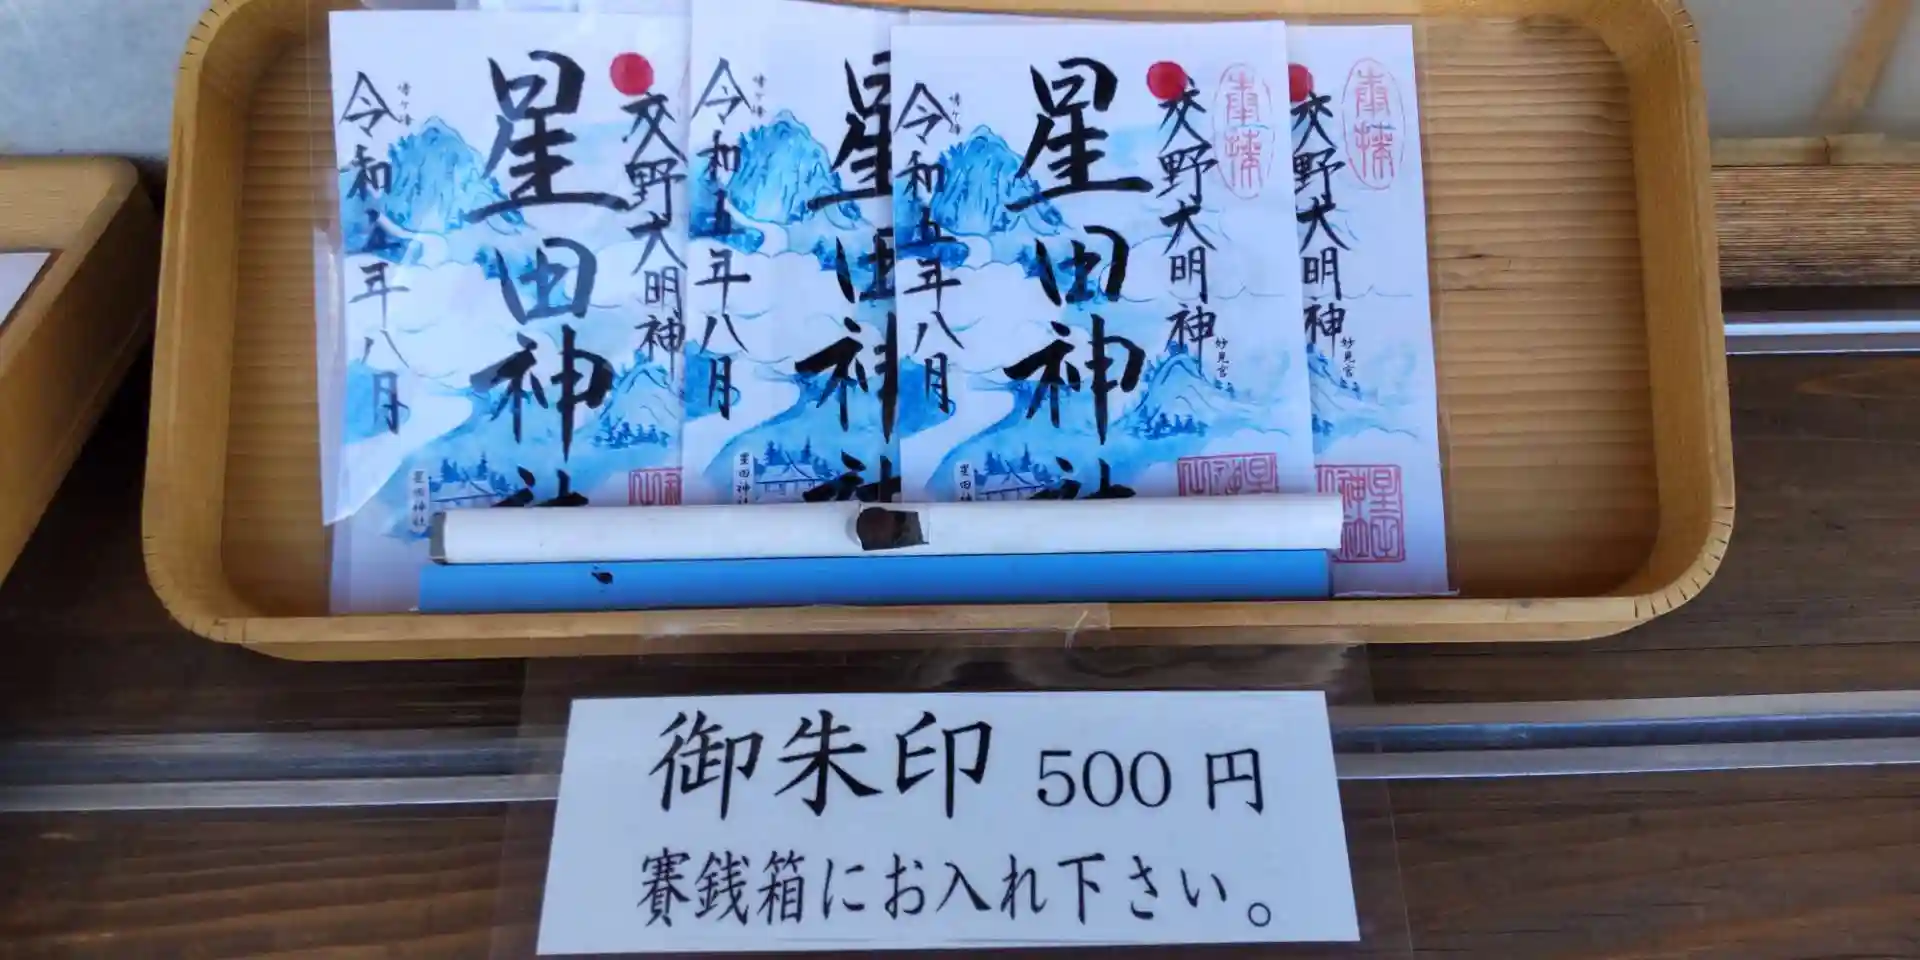 交野大明神
星田神社
令和五年八月
星田神社
星田神社
令和五年八月
星田神
奉拝
交野大明神
妙見宮
星田神社
令和五年八月
星田神
奉拝
交野大明神
妙見宮
星田神社
御朱印 500 円
賽銭箱にお入れ下さい。